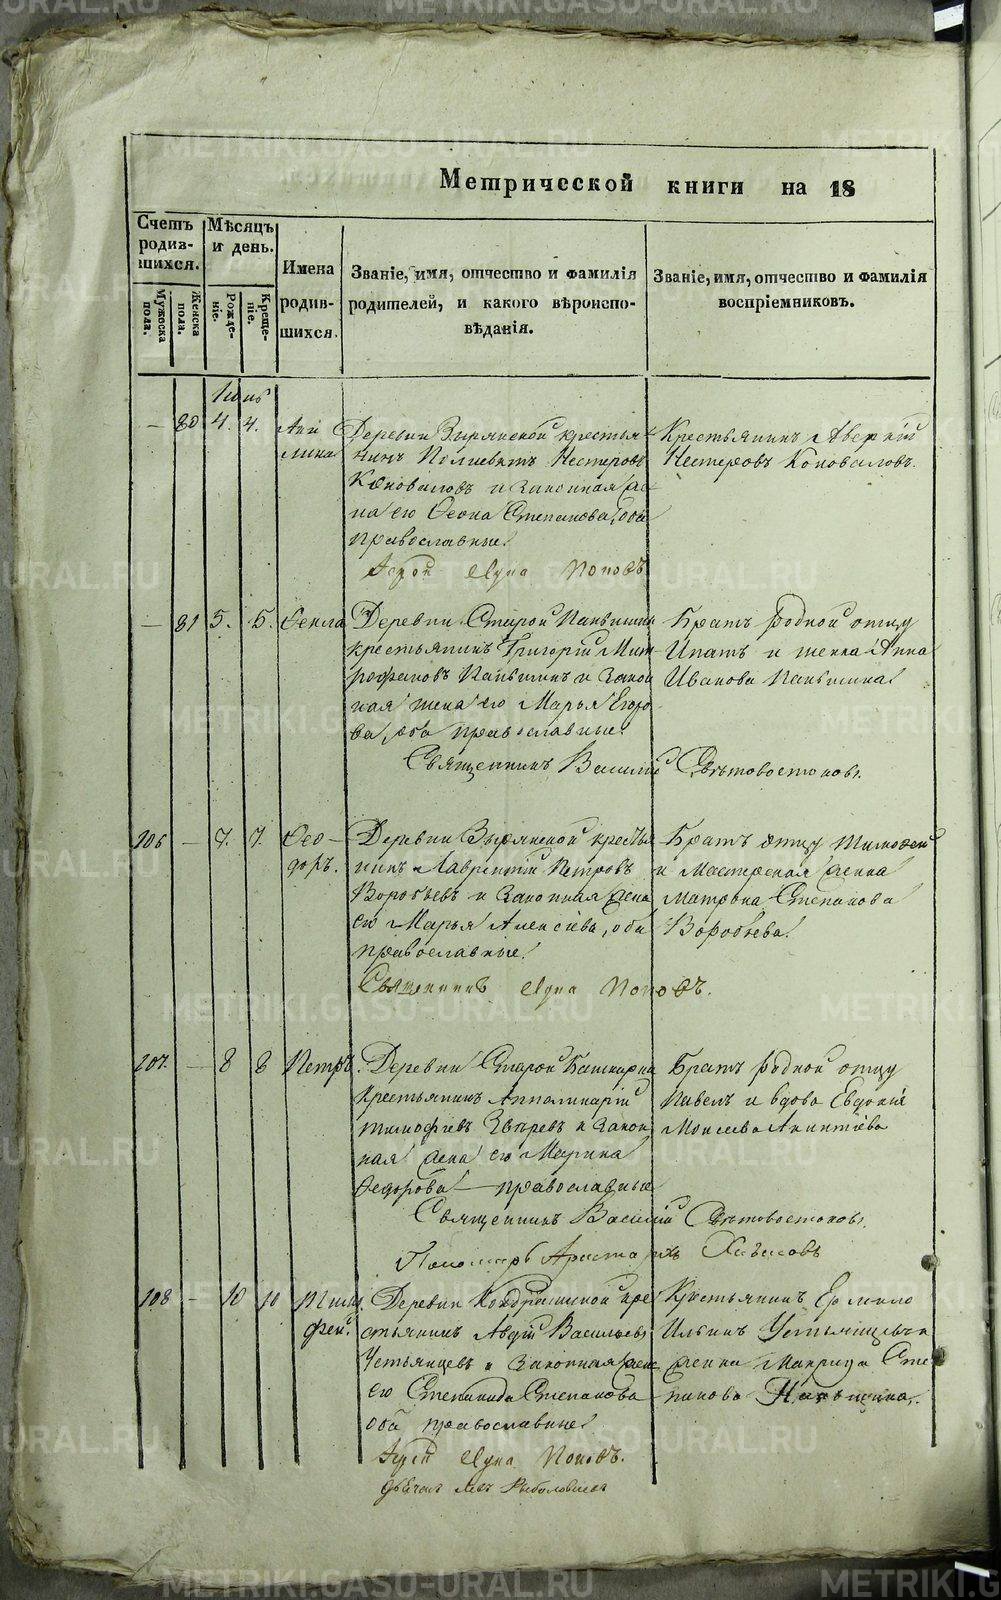 Метрической книги на 18
Счетъ родив-шихся.
Мѣсяцъ и день.
Имена родив-шихся.
Званіе, имя, отчество и фамилія
родителей, и какого вѣроиспо-
вѣданія.
Званіе, имя, отчество и фамилія
воспріемниковъ.
Мужеска пола.
Женска пола.
Рожде-ніе.
Креще-ніе.
Іюнь
— 80 4. 4. Аки
лина
Деревни Зырянской крестья
нинъ Нестеровъ
Коноваловъ и законная же
на его Степанова, оба
православные.
Іерей Лука Поповъ
Крестьянинъ Аверкій
Нестеровъ Коноваловъ.
— 81 5. 5. Ѳекла
Деревни Старой Паньшин
крестьянинъ Григорій Мит
рофановъ Паньшинъ и закон
ная жена его Марья Егоро
ва, оба православные.
Священникъ Василій Свѣтовостоковъ.
Братъ родной отцу
Ипатъ и женка Анна
Иванова Паньшина
106 — 7. 7. Ѳео-
доръ.
Деревни Зырянской крестья
нинъ Лаврентій Петровъ
Воробьевъ и законная жена
его Марья Алексіева, оба
православные.
Священникъ Лука Поповъ.
Братъ отцу Тимофей
и Мастерская женка
Матрона Степанова
Воробьева.
107. — 8 8 Петръ.
Деревни Старой Башкарки
крестьянинъ Апполинарій
Тимофѣевъ Звѣревъ и закон
ная жена его Марина
Ѳедорова — православные
Священникъ Василій Свѣтовостоковъ.
Пономарь Аристархъ
Братъ родной отцу
Павелъ и вдова Евдокія
Моисеева
108 — 10 10 Тимо
фей.
Деревни кре
стьянинъ Авдій Васильевъ
Устьянцевъ и законная жена
его Степанида Степанова
оба православные
Іерей Лука Поповъ.
Левъ
Крестьянинъ Ермило
Ильинъ Устьянцевъ и
женка Макрида Сте
панова Паньшина.
METRIKI.GASO-URAL.RU